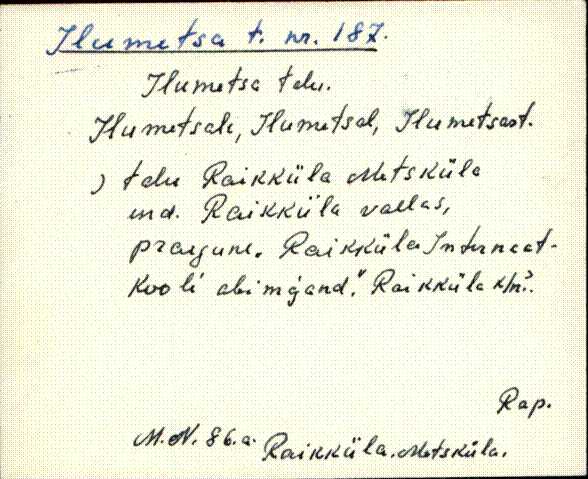 Ilumetsa t. nr. 187.
Ilumetsa talu.
Ilumetsale, Ilumetsal, Ilumetsast.
) talu Raikküla Metsküla
end. Raikküla vallas,
praegune. Raikküla Internaat-
kooli abimajand." Raikküla k/n.
Rap.
M.N. 86.a. Raikküla. Metsküla.